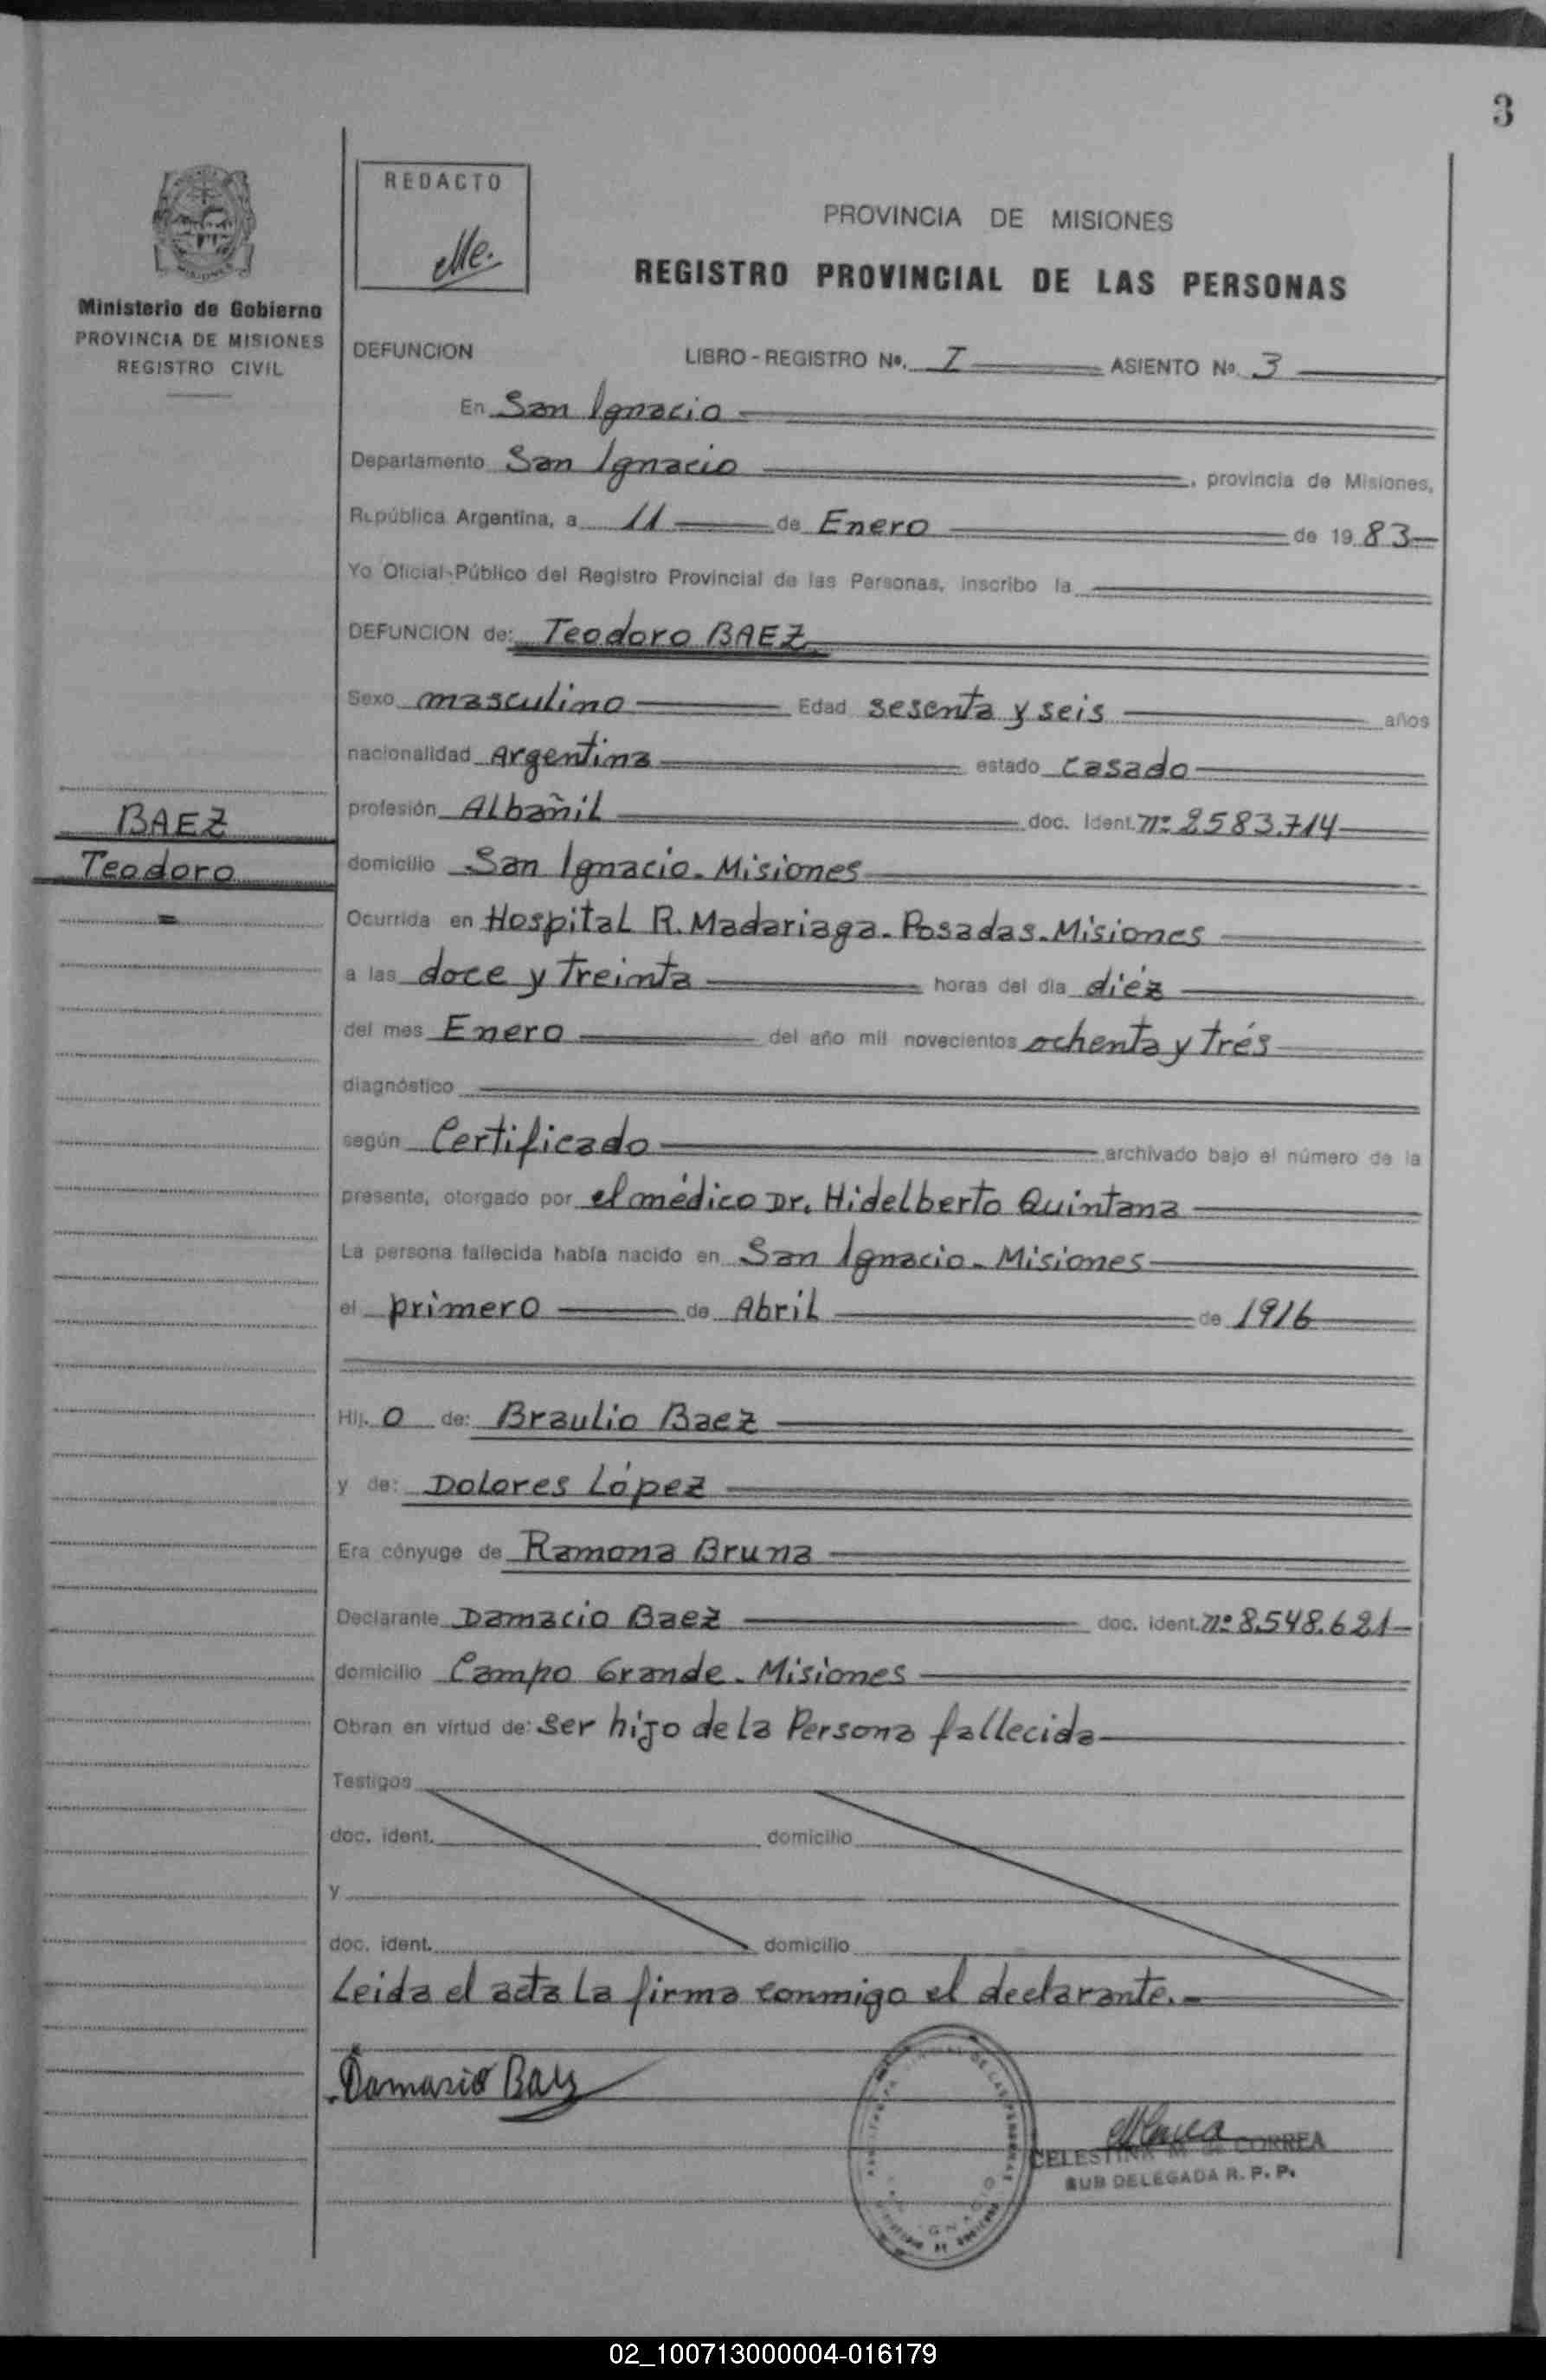 3
REDACTO
PROVINCIA DE MISIONES
REGISTRO PROVINCIAL DE LAS PERSONAS
Ministerio de Gobierno
PROVINCIA DE MISIONES
REGISTRO CIVIL
DEFUNCION LIBRO-REGISTRO No. I ASIENTO No. 3
En San Ignacio
Departamento San Ignacio, provincia de Misiones,
República Argentina, a 11 de Enero de 1983
Yo Oficial Público del Registro Provincial de las Personas, inscribo la
DEFUNCION de: Teodoro BAEZ
Sexo masculino Edad sesenta y seis años
nacionalidad Argentina estado casado
BAEZ
Teodoro
profesión Albañil doc. ident. nº 2583.714
domicilio San Ignacio. Misiones
Ocurrida en Hospital R. Madariaga. Posadas. Misiones
a las doce y treinta horas del día diéz
del mes Enero del año mil novecientos ochenta y trés
diagnóstico
según Certificado archivado bajo el número de la
presente, otorgado por el médico Dr. Hidelberto Quintana
La persona fallecida había nacido en San Ignacio - Misiones
el primero de Abril de 1916
Hij. o de: Braulio Baez
y de: Dolores López
Era cónyuge de Ramona Bruna
Declarante Damacio Baez doc. ident. nº 8.548.621
domicilio Campo Grande - Misiones
Obran en virtud de: ser hijo de la Persona fallecida
Testigos
doc. ident. domicilio
y
doc. ident. domicilio
Leida el acta la firma conmigo el declarante.-
Damasio Baez
CELESTINA M. de CORREA
SUB DELEGADA R. P. P.
02_100713000004-016179